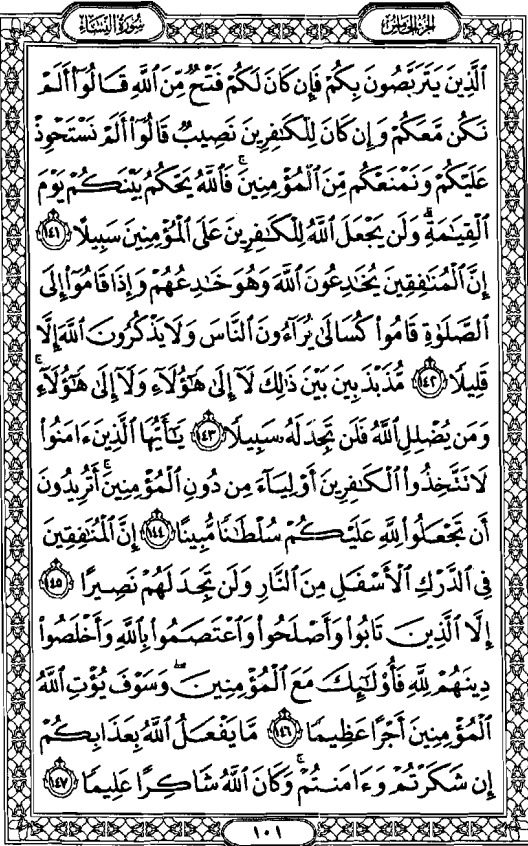 الجزء الخامس
سُورَةُ النِّسَاءِ
ٱلَّذِينَ يَتَرَبَّصُونَ بِكُمْ فَإِن كَانَ لَكُمْ فَتْحٌ مِّنَ ٱللَّهِ قَالُوٓا۟ أَلَمْ
نَكُن مَّعَكُمْ وَإِن كَانَ لِلْكَـٰفِرِينَ نَصِيبٌ قَالُوٓا۟ أَلَمْ نَسْتَحْوِذْ
عَلَيْكُمْ وَنَمْنَعْكُم مِّنَ ٱلْمُؤْمِنِينَ ۚ فَٱللَّهُ يَحْكُمُ بَيْنَكُمْ يَوْمَ
ٱلْقِيَـٰمَةِ ۗ وَلَن يَجْعَلَ ٱللَّهُ لِلْكَـٰفِرِينَ عَلَى ٱلْمُؤْمِنِينَ سَبِيلًا ١٤١
إِنَّ ٱلْمُنَـٰفِقِينَ يُخَـٰدِعُونَ ٱللَّهَ وَهُوَ خَـٰدِعُهُمْ وَإِذَا قَامُوٓا۟ إِلَى
ٱلصَّلَوٰةِ قَامُوا۟ كُسَالَىٰ يُرَآءُونَ ٱلنَّاسَ وَلَا يَذْكُرُونَ ٱللَّهَ إِلَّا
قَلِيلًا ١٤٢ مُّذَبْذَبِينَ بَيْنَ ذَٰلِكَ لَآ إِلَىٰ هَـٰٓؤُلَآءِ وَلَآ إِلَىٰ هَـٰٓؤُلَآءِ ۚ
وَمَن يُضْلِلِ ٱللَّهُ فَلَن تَجِدَ لَهُۥ سَبِيلًا ١٤٣ يَـٰٓأَيُّهَا ٱلَّذِينَ ءَامَنُوا۟
لَا تَتَّخِذُوا۟ ٱلْكَـٰفِرِينَ أَوْلِيَآءَ مِن دُونِ ٱلْمُؤْمِنِينَ ۚ أَتُرِيدُونَ
أَن تَجْعَلُوا۟ لِلَّهِ عَلَيْكُمْ سُلْطَـٰنًا مُّبِينًا ١٤٤ إِنَّ ٱلْمُنَـٰفِقِينَ
فِى ٱلدَّرْكِ ٱلْأَسْفَلِ مِنَ ٱلنَّارِ وَلَن تَجِدَ لَهُمْ نَصِيرًا ١٤٥
إِلَّا ٱلَّذِينَ تَابُوا۟ وَأَصْلَحُوا۟ وَٱعْتَصَمُوا۟ بِٱللَّهِ وَأَخْلَصُوا۟
دِينَهُمْ لِلَّهِ فَأُو۟لَـٰٓئِكَ مَعَ ٱلْمُؤْمِنِينَ ۖ وَسَوْفَ يُؤْتِ ٱللَّهُ
ٱلْمُؤْمِنِينَ أَجْرًا عَظِيمًا ١٤٦ مَّا يَفْعَلُ ٱللَّهُ بِعَذَابِكُمْ
إِن شَكَرْتُمْ وَءَامَنتُمْ ۚ وَكَانَ ٱللَّهُ شَاكِرًا عَلِيمًا ١٤٧
١٠١